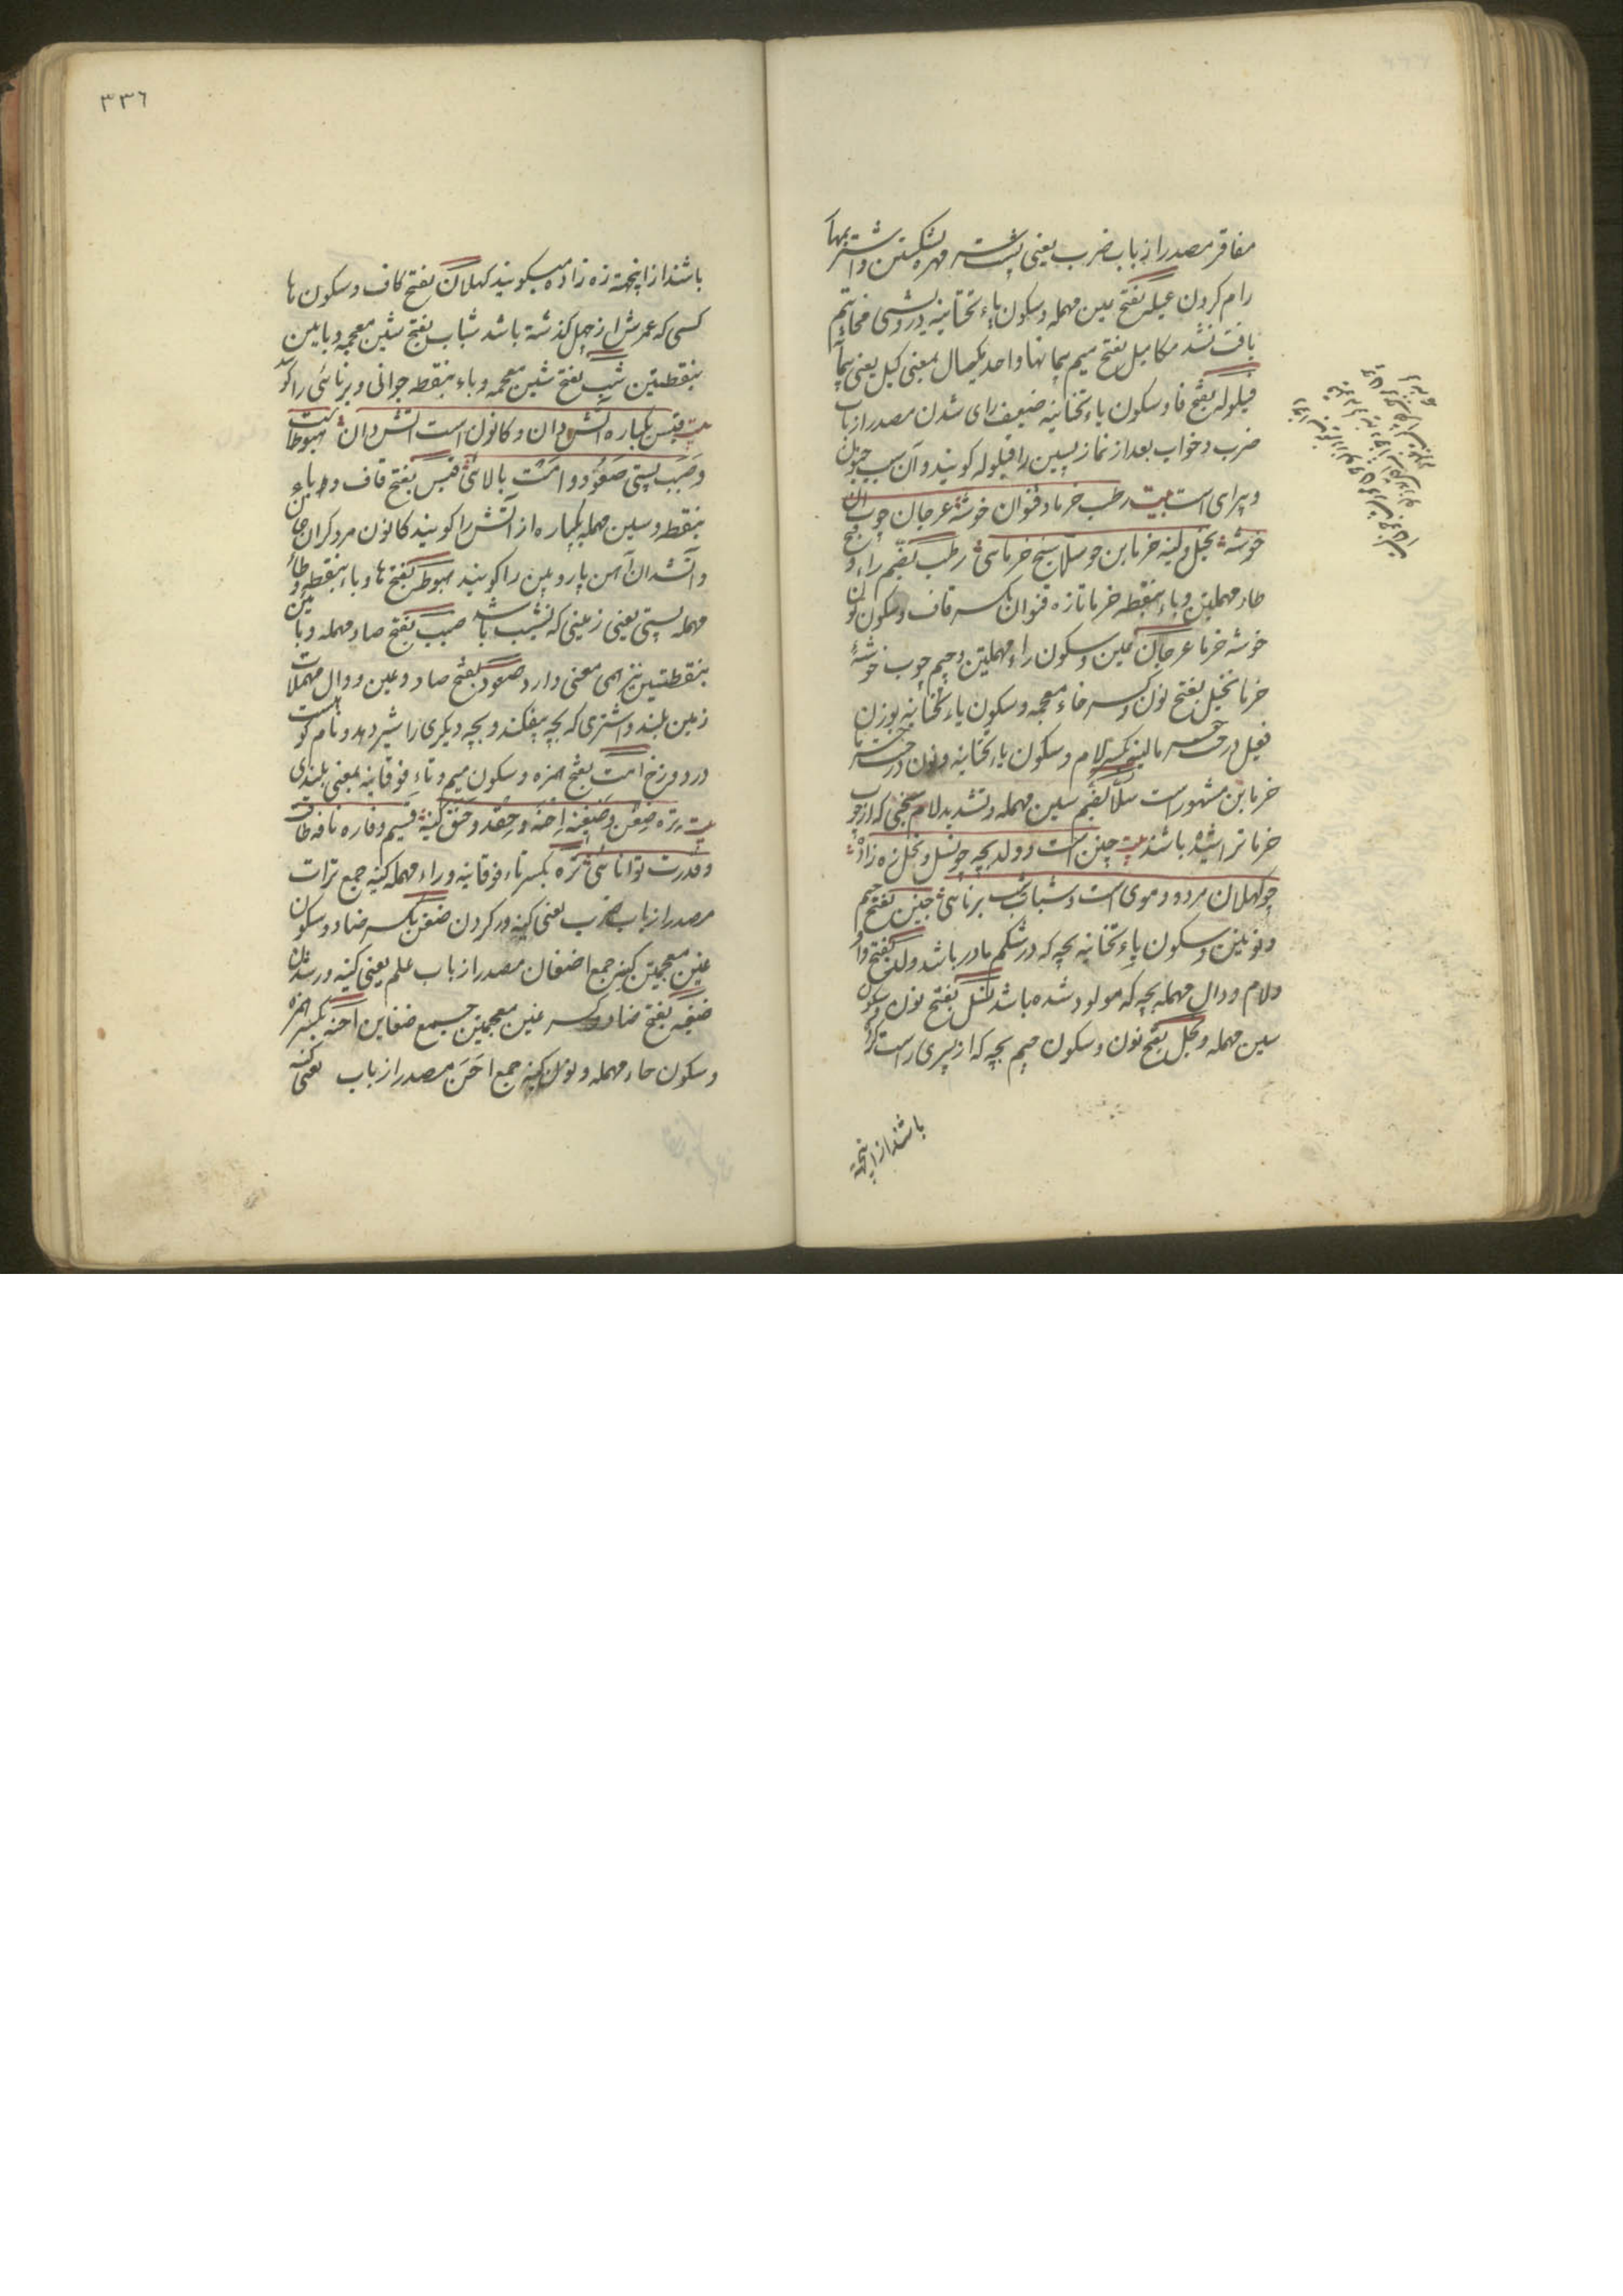 مفاقر مصدر از باب ضرب یعنی پشت مهره شکستن و اشتر بها
رام کردن عیله بفتح عین مهمله و سکون یاء تحتانیه درویشی
یافت نشد مکاییل بفتح میم پیمانها واحد مکیال بمعنی کیل یعنی
فیلوله بفتح فا و سکون یاء تحتانیه ضعیف رای شدن مصدر از باب
ضرب و خواب بعد از نماز پسین را فیلوله کویند و آن سبب
و پیرای است بیت رطب خرما و قنوان خوشه عرجان چوب آن
خوشه نخیل و لینه خرمابن چو سلّا سیخ خرمائی رطب بضم راء و فتح
طاء مهملتین و باء بنقطه خرما تازه قنوان بکسر قاف و سکون نون
خوشه خرما عرجان بعین و سکون راء مهملتین و جیم چوب خوشهٔ
خرما نخیل بفتح نون و کسر خاء معجمه و سکون یاء تحتانیه بوزن
فعیل درخت خرما لینه بکسر لام و سکون یاء تحتانیه و نون درخت
خرمابن مشهور است سلّا بضم سین مهمله و تشدید لام سیخی که از چوب
خرما تراشیده باشند بیت جنین است و ولد بچه چو نسل و نجل زه زاده
چو کهلان مرد دو موی است و شباب شب برنائی جنین بفتح جیم
و نونین و سکون یاء تحتانیه بچه که در شکم مادر باشد ولد بفتح واو
و لام و دال مهمله بچه که مولود شده باشد نسل بفتح نون و سکون
سین مهمله و نجل بفتح نون و سکون جیم بچه که از پسری راست
باشند از اینجهة
٣٣٦
باشند از اینجهة زه زاده میکویند کهلان بفتح کاف و سکون ها
کسی که عمرش از چهل کذشته باشد شباب بفتح شین معجمه و بایین
بنقطتین شب بفتح شین معجمه و باء بنقطه جوانی و برنائی را کویند
بیت قبس یکپاره آتش دان و کانون است آتش دان هبوطست
و صبب پستی صعود و امت بالائی قبس بفتح قاف و باء
بنقطه و سین مهمله یکپاره از آتش را کویند کانون مرد کران جان
و آتشدان آهن پاره و بین را کویند هبوط بفتح ها و باء بنقطه و طاء
مهمله پستی یعنی زمینی که نشیب باشد صبب بفتح صاد مهمله و بایین
بنقطتین نیز همی معنی دارد صعود بفتح صاد و عین و دال مهملات
زمین بلند و اشتری که بچه بیفکند و بچه دیکری را شیر دهد و نام کوهیست
در دوزخ امت بفتح همزه و سکون میم و تاء فوقانیه بمعنی بلندی
بیت تره ضغن و ضغینه احنه و حقد و حنق کینه قسیم و فاره نافه طاقت
و قدرت توانائی تره بکسر تاء فوقانیه و راء مهمله کینه جمع ترات
مصدر از باب ضرب یعنی کینه ور کردن ضغن بکسر ضاد و سکون
غین معجمتین کینه جمع اضغان مصدر از باب علم یعنی کینه ور شدن
ضغینه بفتح ضاد و کسر غین معجمتین جمع ضغاین احنه بکسر همزه
و سکون حاء مهمله و نون کینه جمع احن مصدر از باب یعنی کینه